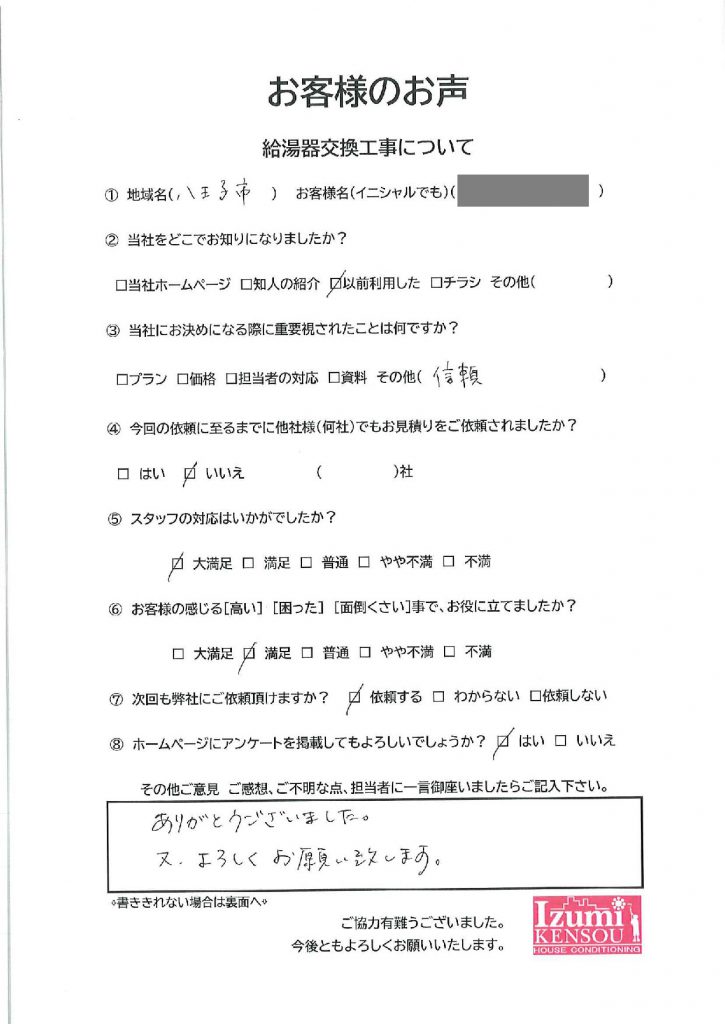 お客様のお声
給湯器交換工事について
① 地域名(八王子市 ) お客様名(イニシャルでも)( )
② 当社をどこでお知りになりましたか？
□当社ホームページ □知人の紹介 ☑以前利用した □チラシ その他( )
③ 当社にお決めになる際に重要視されたことは何ですか？
□プラン □価格 □担当者の対応 □資料 その他( 信頼 )
④ 今回の依頼に至るまでに他社様(何社)でもお見積りをご依頼されましたか？
□ はい ☑ いいえ ( )社
⑤ スタッフの対応はいかがでしたか？
☑ 大満足 □ 満足 □ 普通 □ やや不満 □ 不満
⑥ お客様の感じる[高い] [困った] [面倒くさい]事で、お役に立てましたか？
□ 大満足 ☑ 満足 □ 普通 □ やや不満 □ 不満
⑦ 次回も弊社にご依頼頂けますか？ ☑ 依頼する □ わからない □依頼しない
⑧ ホームページにアンケートを掲載してもよろしいでしょうか？ ☑ はい □ いいえ
その他ご意見 ご感想、ご不明な点、担当者に一言御座いましたらご記入下さい。
ありがとうございました。
又、よろしくお願い致します。
◇書ききれない場合は裏面へ◇
ご協力有難うございました。
今後ともよろしくお願いいたします。
Izumi
KENSOU
HOUSE CONDITIONING